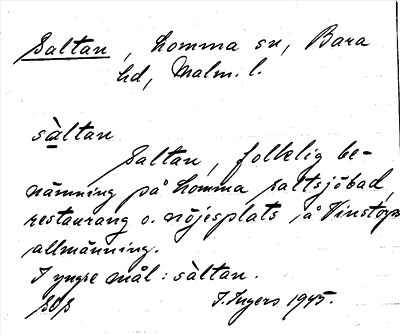 Saltan, Lomma sn, Bara
hd, Malm. l.
sàltan
Saltan, folklig be-
nämning på Lomma saltsjöbad,
restaurang o. nöjesplats å Vinstorps
allmänning.
I yngre mål: sàltan.
I. Ingers 1945.